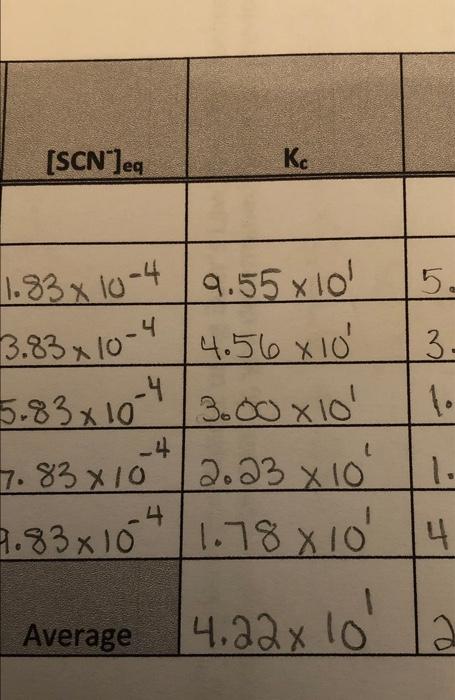 [SCN⁻]eq Kc
1.83 x 10⁻⁴ 9.55 x 10¹ 5.
3.83 x 10⁻⁴ 4.56 x 10¹ 3.
5.83 x 10⁻⁴ 3.00 x 10¹ 1.
7.83 x 10⁻⁴ 2.23 x 10¹ 1.
9.83 x 10⁻⁴ 1.78 x 10¹ 4
Average 4.22 x 10¹ 2